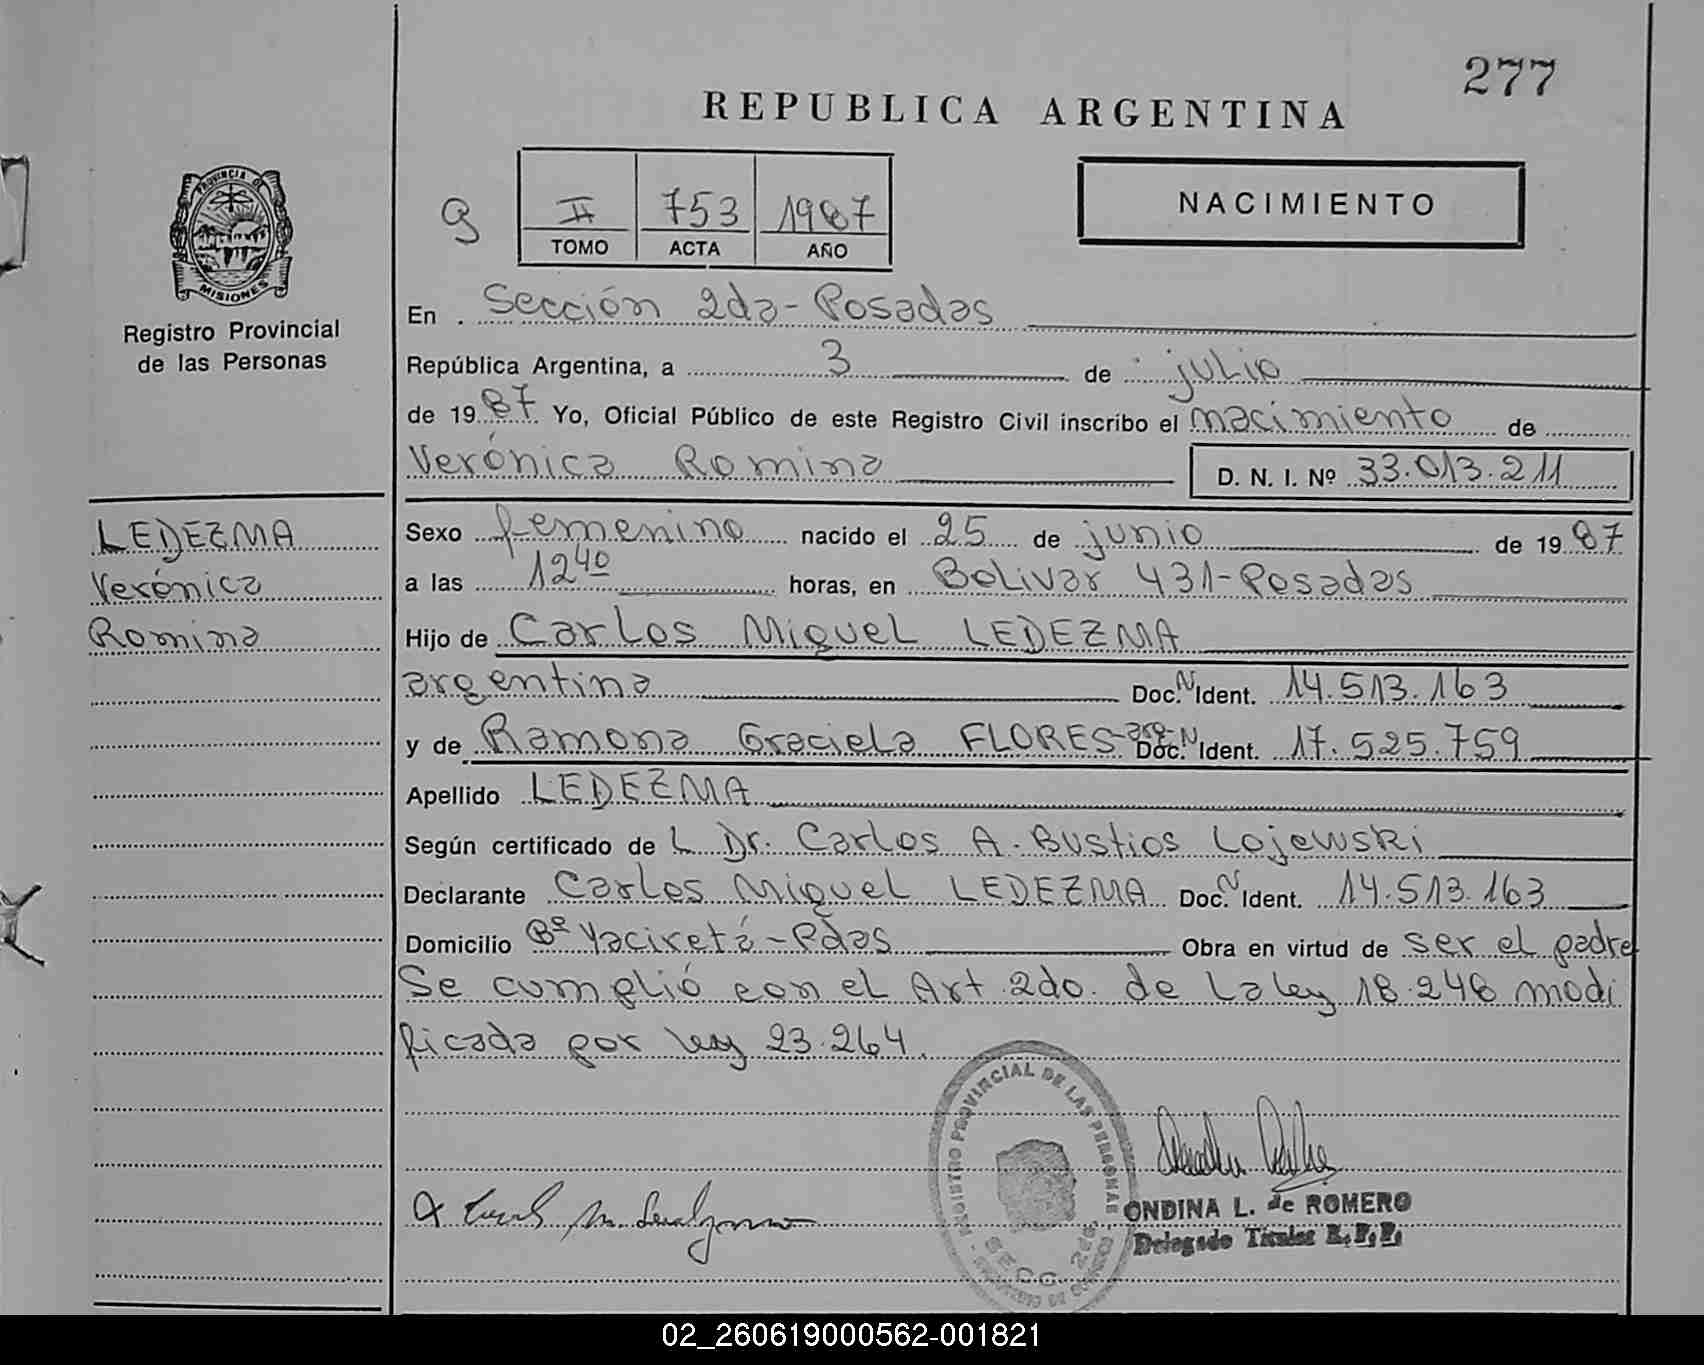 277
REPUBLICA ARGENTINA
PROVINCIA DE
MISIONES
Registro Provincial
de las Personas
II 753 1987
TOMO ACTA AÑO
NACIMIENTO
En . Sección 2da-Posadas
República Argentina, a 3 de julio
de 1987 Yo, Oficial Público de este Registro Civil inscribo el nacimiento de
Verónica Romina D. N. I. Nº 33.013.211
LEDEZMA
Verónica
Romina
Sexo femenino nacido el 25 de junio de 1987
a las 12 40 horas, en Bolivar 431-Posadas
Hijo de Carlos Miguel LEDEZMA
argentina Doc. N Ident. 14.513.163
y de Ramona Graciela FLORES-arg- Doc. N Ident. 17.525.759
Apellido LEDEZMA
Según certificado de L Dr. Carlos A. Bustios Lojewski
Declarante Carlos Miguel LEDEZMA Doc. N Ident. 14.513.163
Domicilio Bº Yaciretá-Pdas Obra en virtud de ser el padre
Se cumplió con el Art 2do. de la ley 18.248 modi
ficada por ley 23.264.
REGISTRO PROVINCIAL DE LAS PERSONAS
SECC. 2da.
ONDINA L. de ROMERO
Delegado Titular R.P.P.
02_260619000562-001821